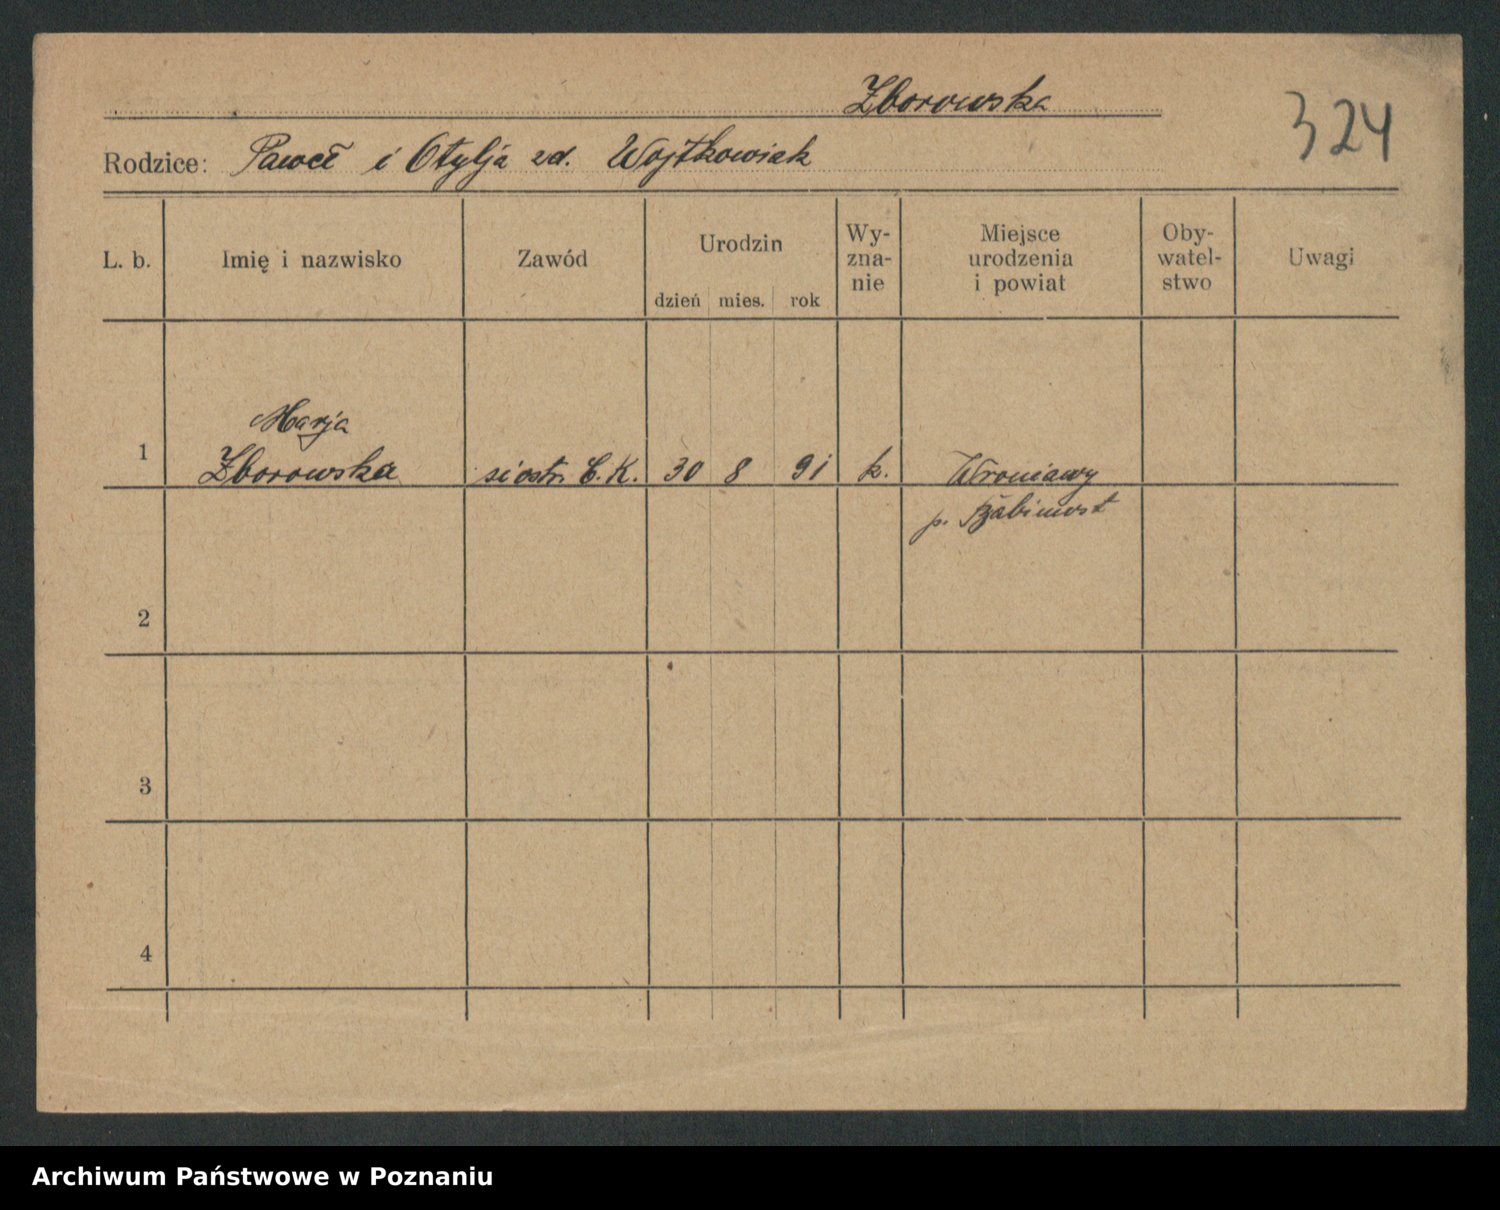 Zborowska
324
Rodzice: Paweł i Otylja zd. Wojtkowiak
L. b. Imię i nazwisko Zawód Urodzin dzień mies. rok Wy-zna-nie Miejsce urodzenia i powiat Oby-watel-stwo Uwagi
Marja
1 Zborowska siostr. C. K. 30 8 91 k. Wroniawy
p. Babimost
2
3
4
Archiwum Państwowe w Poznaniu